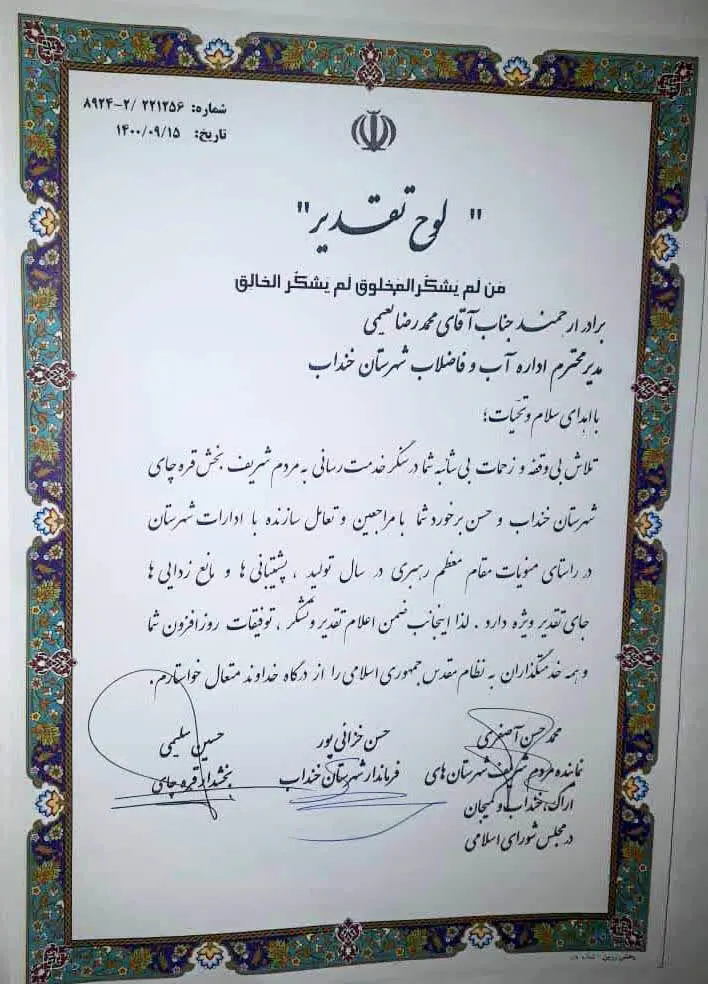 شماره: ۲۲۱۲۵۶ /۲-۸۹۲۴
تاریخ: ۱۴۰۰/۰۹/۱۵
" لوح تقدیر"
مَن لَم یَشکُر المَخلوق لَم یَشکُر الخالِق
برادر ارجمند جناب آقای محمدرضا نعیمی
مدیر محترم اداره آب و فاضلاب شهرستان خنداب
با اهدای سلام و تحیات؛
تلاش بی‌وقفه و زحمات بی شائبه شما در سنگر خدمت رسانی به مردم شریف بخش قره چای
شهرستان خنداب و حسن برخورد شما با مراجعین و تعامل سازنده با ادارات شهرستان
در راستای منویات مقام معظم رهبری در سال تولید ، پشتیبانی ها و مانع زدایی ها
جای تقدیر ویژه دارد . لذا اینجانب ضمن اعلام تقدیر و تشکر ، توفیقات روزافزون شما
و همه خدمتگذاران به نظام مقدس جمهوری اسلامی را از درگاه خداوند متعال خواستارم.
محمدحسن آصفری
نماینده مردم شریف شهرستان های
اراک، خنداب و کمیجان
در مجلس شورای اسلامی
حسن خزائی پور
فرماندار شهرستان خنداب
حسین سلیمی
بخشدار قره چای